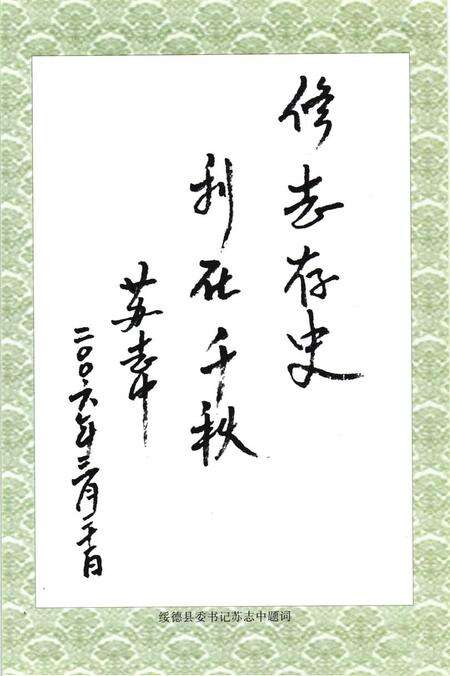 修志存史
利在千秋
苏志中
二〇〇六年三月二十日
绥德县委书记苏志中题词